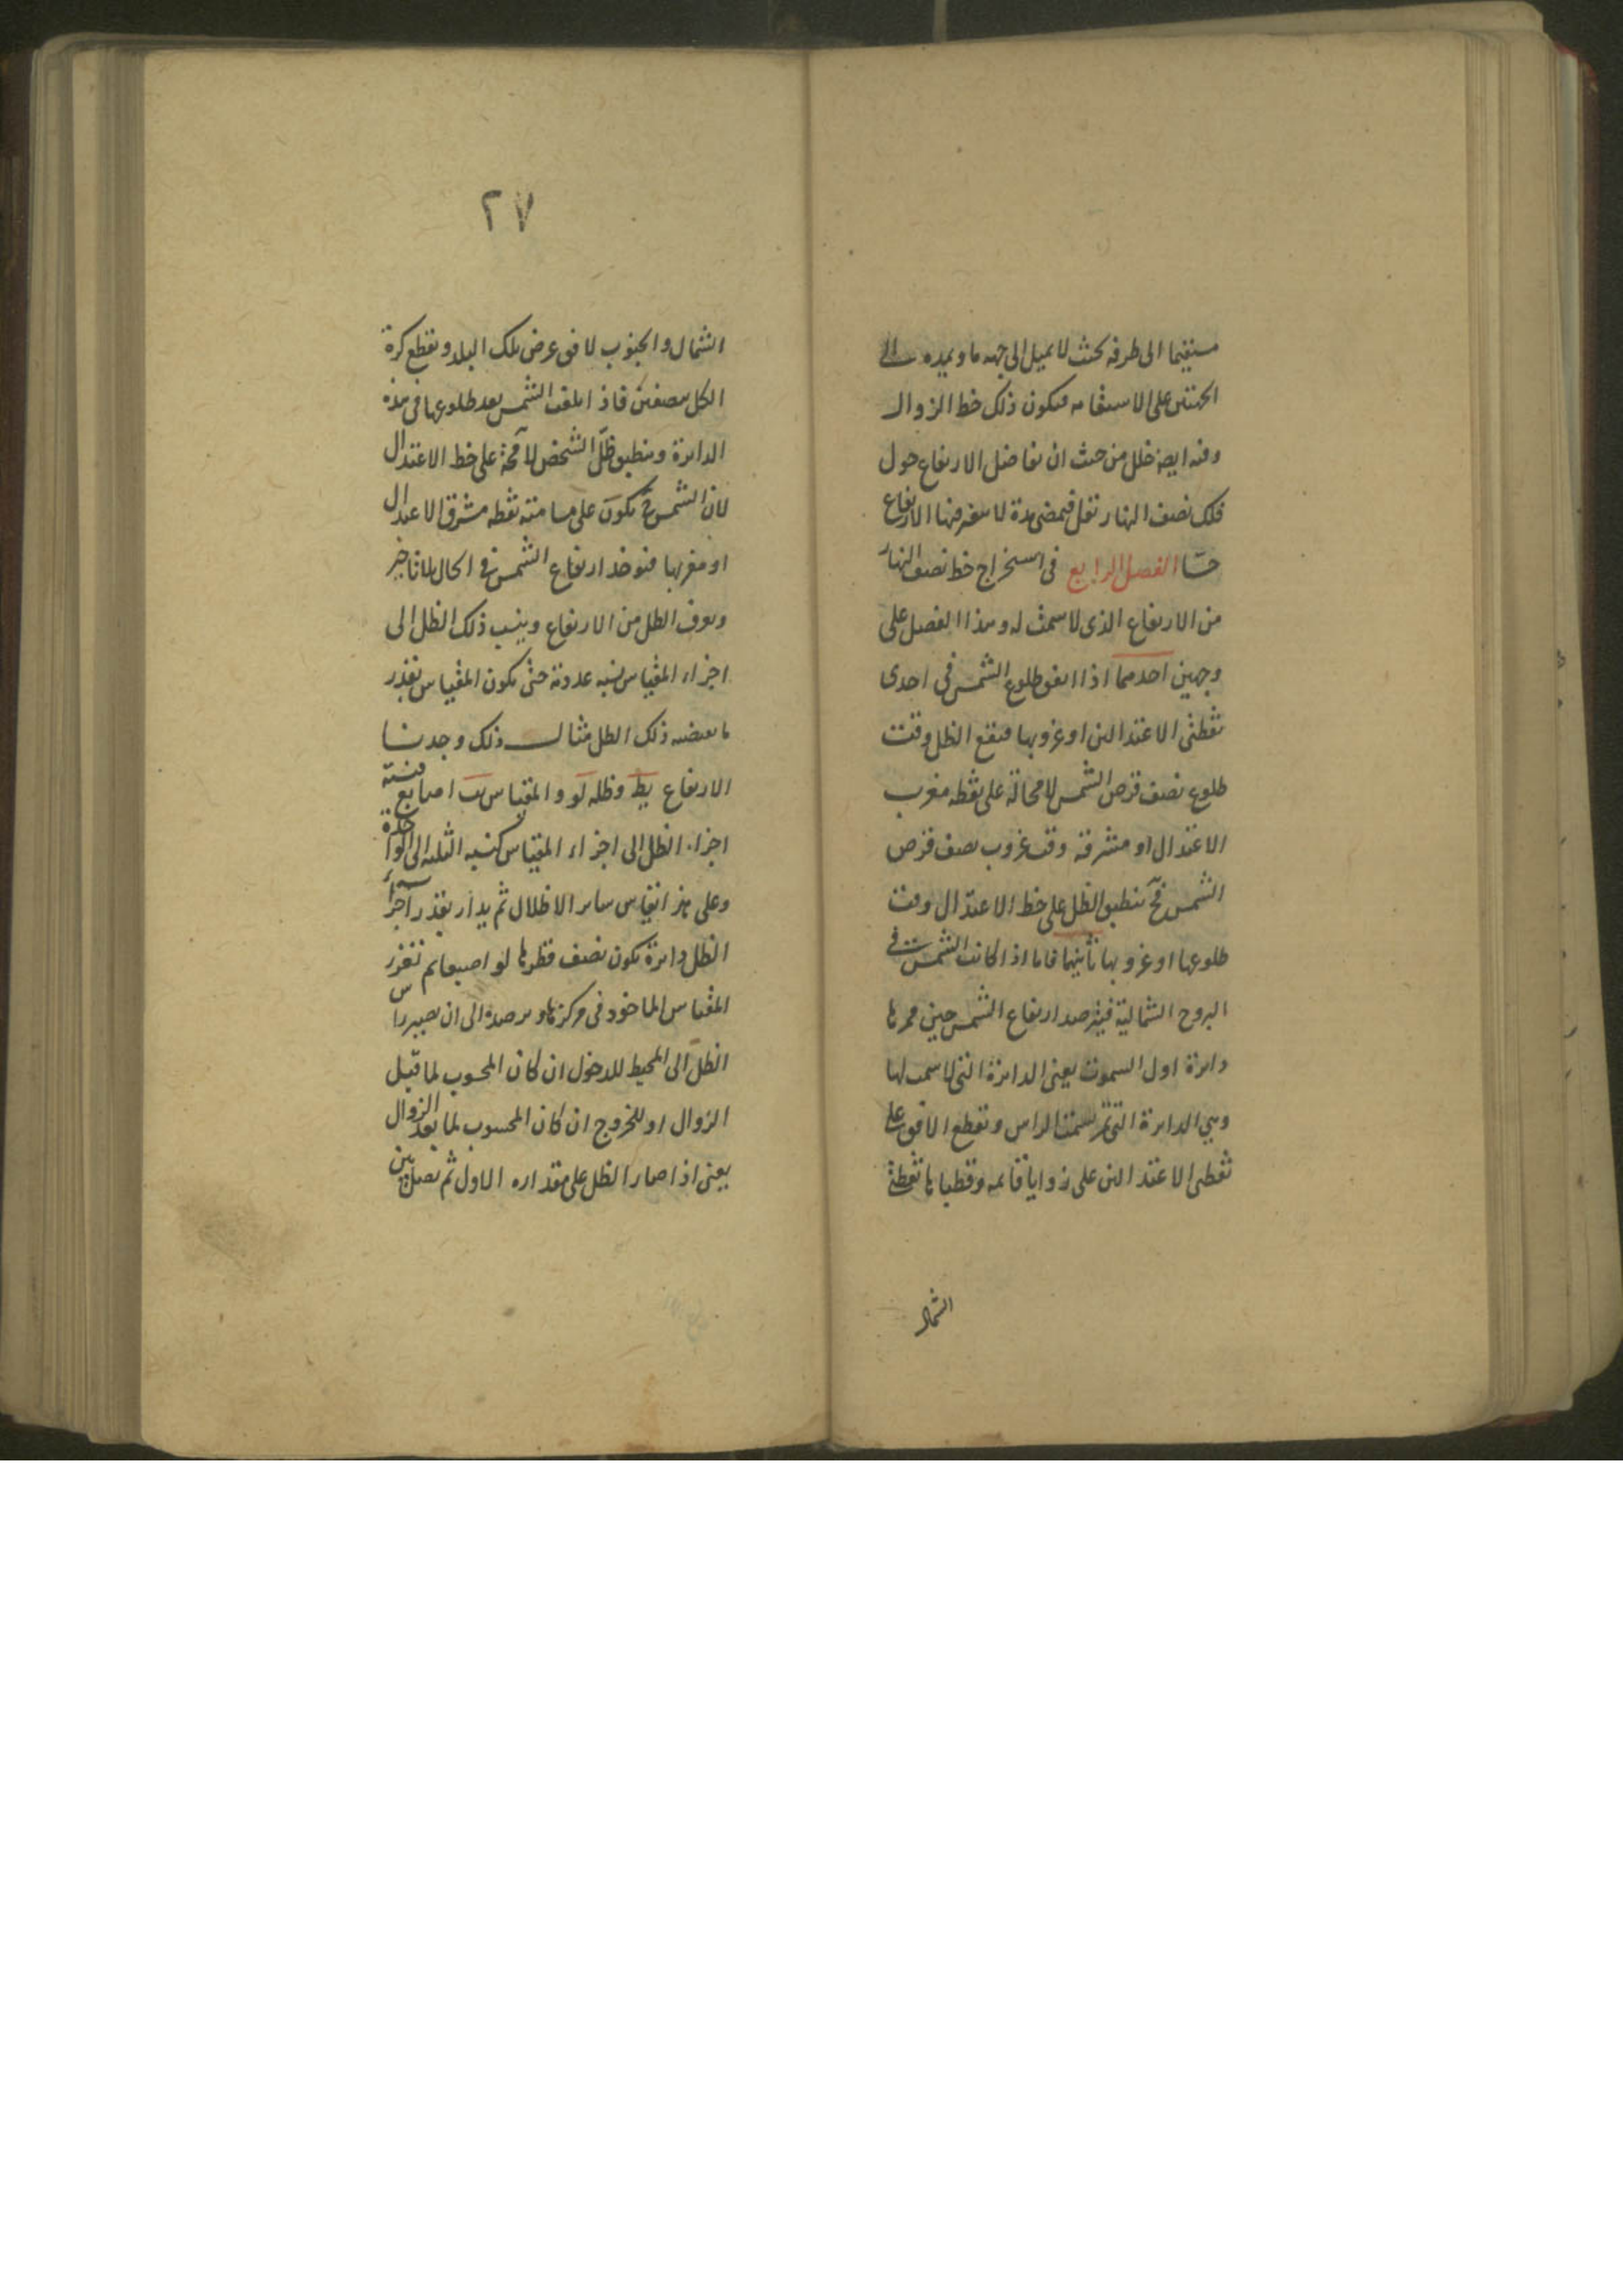 مستقيما الى طرفه بحيث لا يميل الى جهه ما ويمده الى
الجهتين على الاستقامه فيكون ذلك خط الزوال
وفيه ايضا خلل من حيث ان تفاضل الارتفاع حول
فلك نصف النهار تقل فيمضى مدة لا يتغير فيها الارتفاع
حسّا الفصل الرابع فى استخراج خط نصف النهار
من الارتفاع الذى لا سمت له وهذا الفصل على
وجهين احدهما اذا اتفق طلوع الشمس فى احدى
نقطتى الاعتدالين او غروبها فيقع الظل وقت
طلوع نصف قرص الشمس لا محالة على نقطه مغرب
الاعتدال او مشرقه وقت غروب نصف قرص
الشمس فح ينطبق الظل على خط الاعتدال وقت
طلوعها او غروبها ثانيهما فاما اذا كانت الشمس فى
البروج الشمالية فيرصد ارتفاع الشمس حين ممرها
دائرة اول السموت يعنى الدائرة التى لا سمت لها
وهي الدائرة التى تمر بسمت الراس وتقطع الافق على
نقطتى الاعتدالين على زوايا قايمه وقطباها نقطتى
الشمال
٢٧
الشمال والجنوب لافق عرض تلك البلد وتقطع كرة
الكل بنصفين فاذا بلغت الشمس بعد طلوعها فى هذه
الدائرة وينطبق ظلّ الشخص لا محة على خط الاعتدال
لان الشمس ح تكون على مسامتة نقطه مشرق الاعتدال
او مغربها فيوخذ ارتفاع الشمس فى الحال بلا تاخير
ويعرف الظل من الارتفاع وينسب ذلك الظل الى
اجزاء المقياس نسبه عددية حتى يكون المقياس بقدر
ما يقتضيه ذلك الظل مثال ذلك وجدنا
الارتفاع يط وظله لو والمقياس يب اصابع فنسبة
اجزاء الظل الى اجزاء المقياس كنسبه الثلثه الى الواحدة
وعلى هذا يقاس ساير الاظلال ثم يدار بقدر اجزاء
الظل دائرة يكون نصف قطرها لو اصبعا ثم تغرز
المقياس الماخوذ فى مركزها ويرصده الى ان يصير راس
الظل الى المحيط للدخول ان كان المحسوب لما قبل
الزوال او للخروج ان كان المحسوب لما بعد الزوال
يعنى اذا صار الظل على مقداره الاول ثم نصل بين